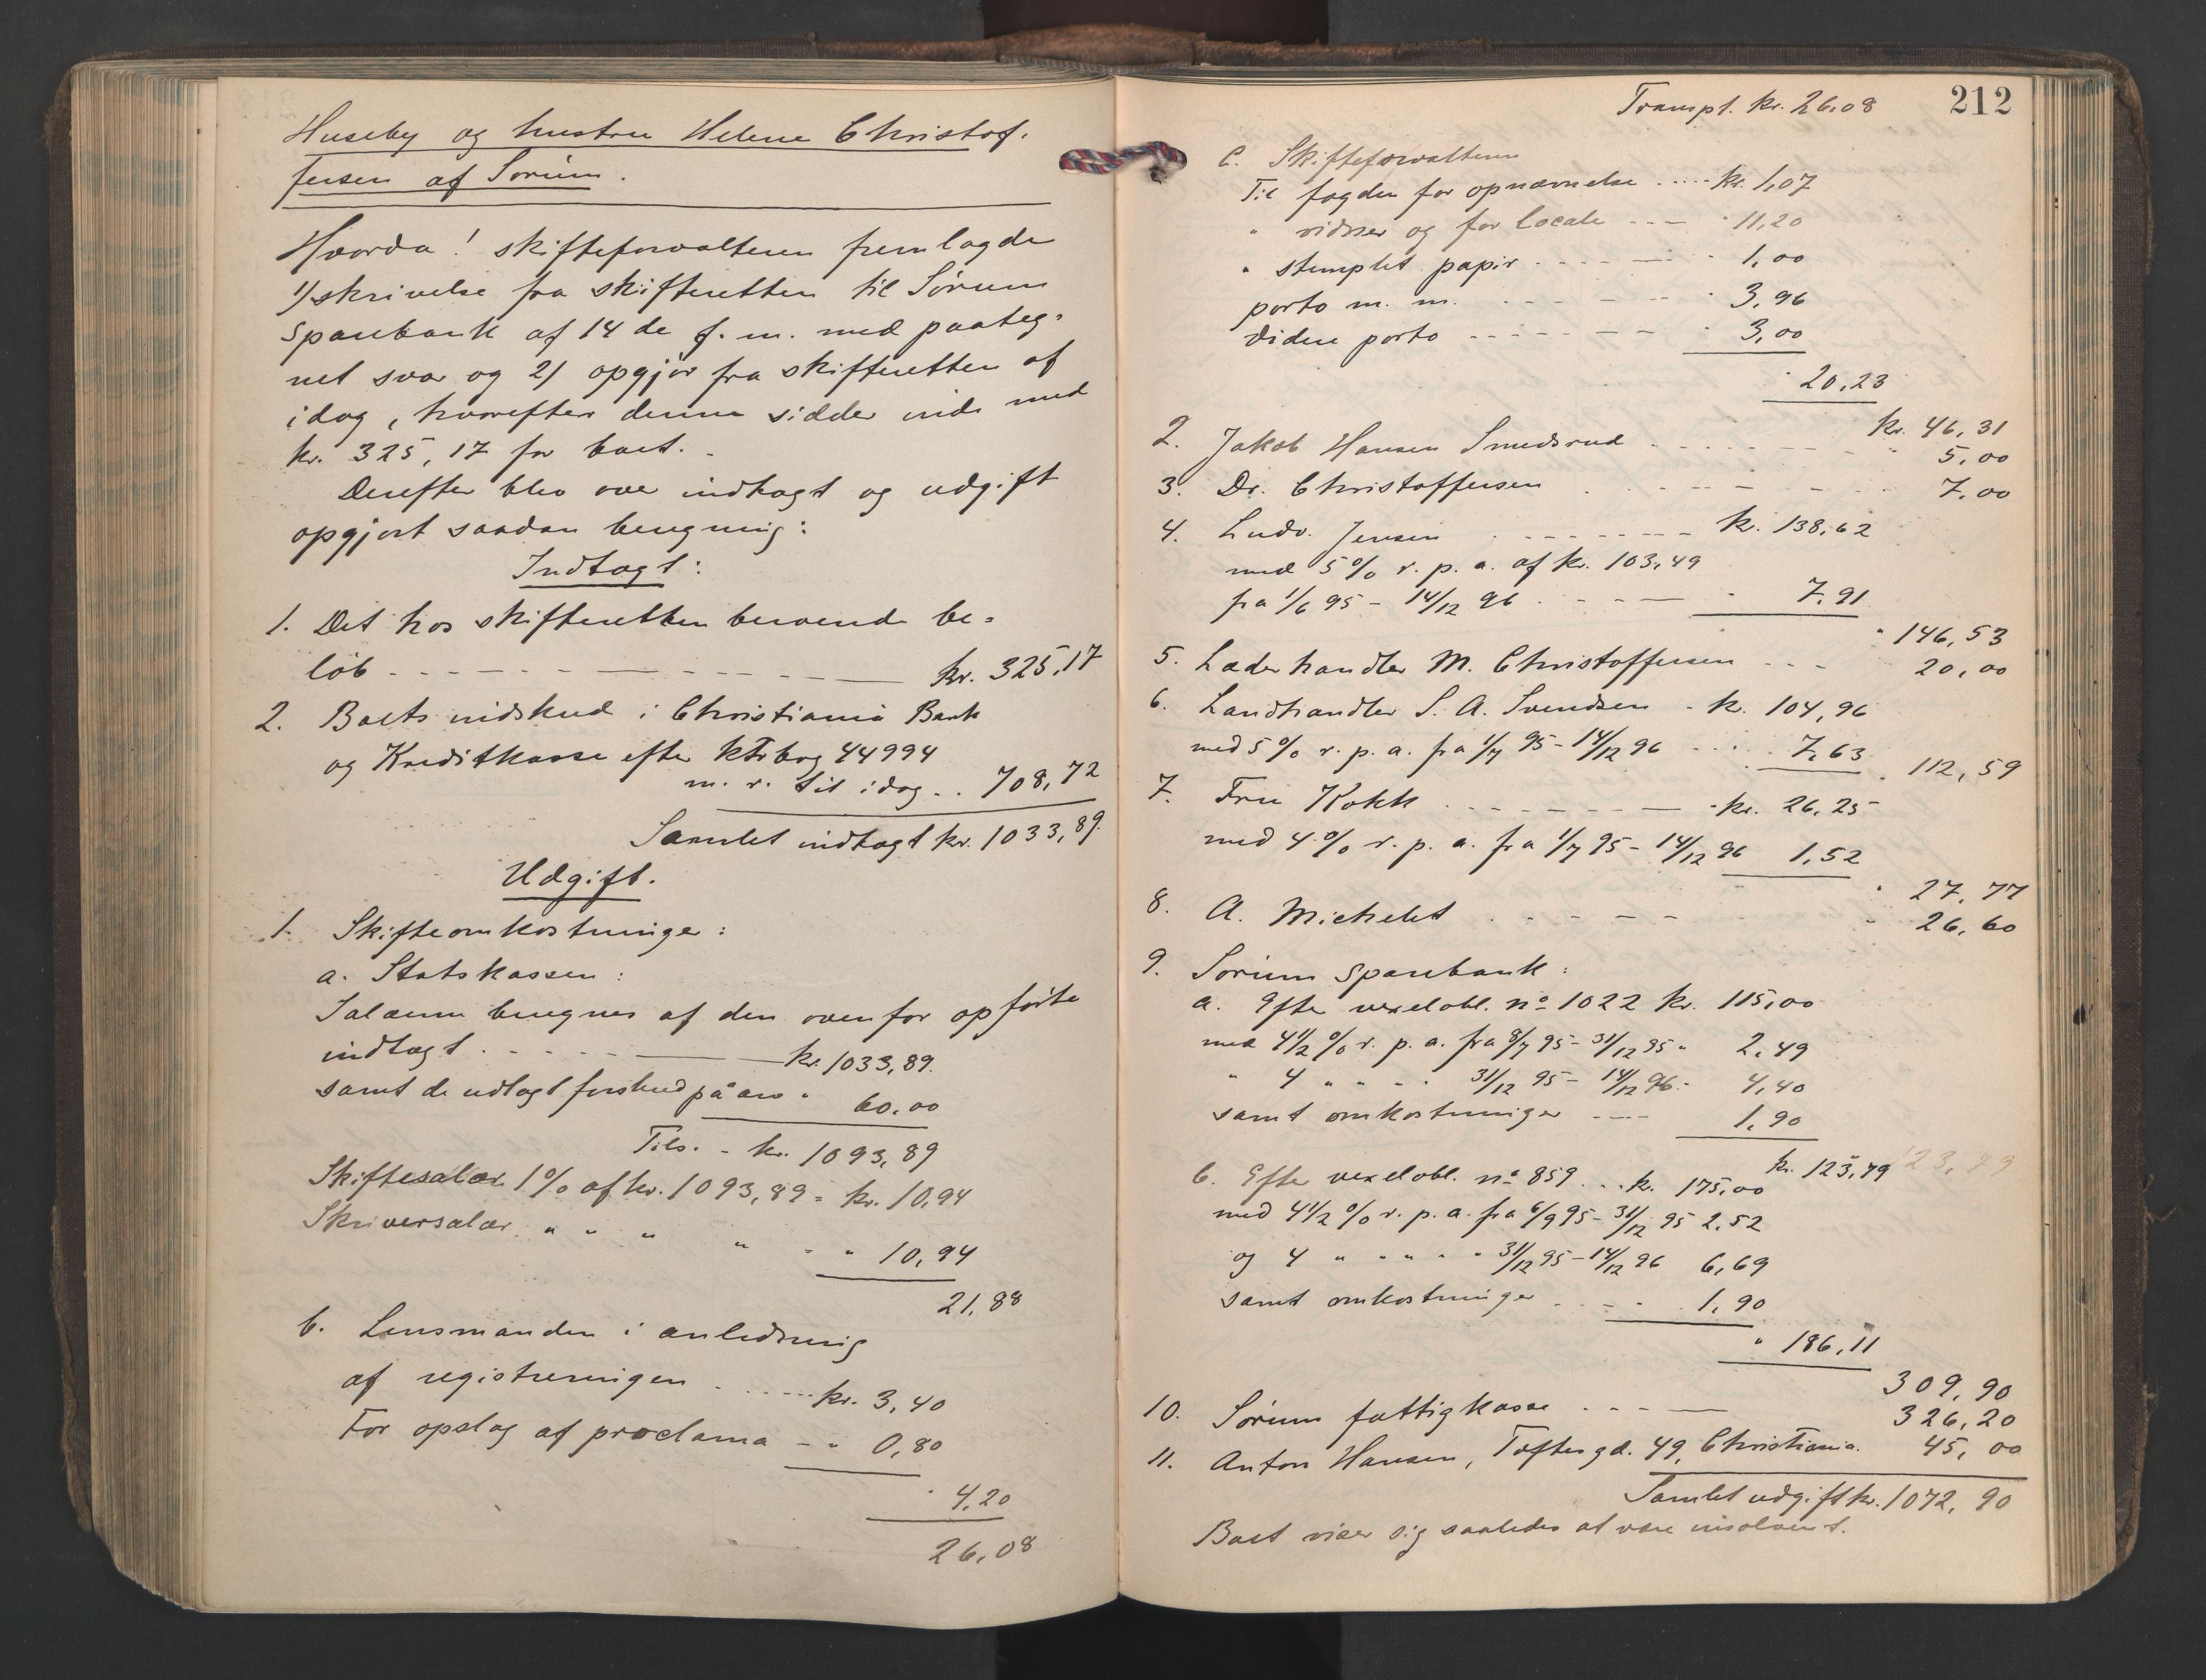 Huseby og hustru Helene Christof-
fersen af Sørum.
Hvorda! skifteforvalteren fremlagde
1) skrivelse fra skifteretten til Sørum
Sparebank af 14de f. m. med paateg-
net svar og 2) opgjør fra skifteretten af
idag, hvorefter denne sidder inde med
kr. 325,17 for boet.
Derefter blev over indtægt og udgift
opgjort saadan beregning:
Indtægt:
1. Det hos skifteretten beroende be-
løb - - - - - kr. 325,17
2. Boets indskud i Christiania Bank
og Kreditkasse efter ktrbog 44994
m. r. til idag . . 708,72
Samlet indtægt kr. 1033,89.
Udgift.
1. Skifteomkostninger:
a. Statskassen:
Salærene beregnes af den ovenfor opførte
indtægt . - - - kr. 1033,89.
samt de udlagt forskud på arv " 60,00
Tils. - kr. 1093,89
Skiftesalær 1% af kr. 1093,89 = kr. 10,94
Skriversalær " " " " " " 10,94
21,88
b. Lensmanden i anledning
af registreringen . . . . . kr. 3,40
For opslag af proclama - " 0,80
" 4,20
26,08
212
Transpt. kr. 26,08
c. Skifteforvalteren
Til fogden for opnævnelse ..... kr. 1,07
" vidner og for locale - - - " 11,20
" stemplet papir - - - - " 1,00
porto m. m. - - - - " 3,96
videre porto - - - - - " 3,00
" 20,23
kr. 46,31
2. Jakob Hansen Smedsrud . - - - - - " 5,00
3. Dr. Christoffersen . - - - - - 7,00
4. Ludv. Jensen . - - - - - kr. 138,62
med 5% r. p. a. af kr. 103,49
fra 1/6 95 - 14/12 96 . - - - " 7,91
" 146,53
5. Læderhandler M. Christoffersen - - - 20,00
6. Landhandler S. A. Svendsen - kr. 104,96
med 5% r. p. a. fra 1/7 95 - 14/12 96 - . . 7,63
" 112,59
7. Fru Kokk . - - - - - kr. 26,25
med 4% r. p. a. fra 1/7 95 - 14/12 96 1,52
" 27,77
8. A. Michelet . - - - - " 26,60
9. Sørum Sparebank:
a. Efter vexelobl. no 1022 kr. 115,00
med 4 1/2 % r. p. a. fra 8/7 95 - 31/12 95 " 2,49
" 4 " " " " 31/12 95 - 14/12 96 " 4,40
samt omkostninger - - - 1,90
kr. 123,79
b. Efter vexelobl. no 859 . . . kr. 175,00
med 4 1/2 % r. p. a. fra 6/9 95 - 31/12 95 2,52
og 4 " " " " " 31/12 95 - 14/12 96 6,69
samt omkostninger . - - . 1,90
" 186,11
309,90
10. Sørum fattigkasse . - - - 326,20
11. Anton Hansen, Toftesgd. 49, Christiania. 45,00
Samlet udgift kr. 1072,90
Boet viser sig saaledes at være insolvent.